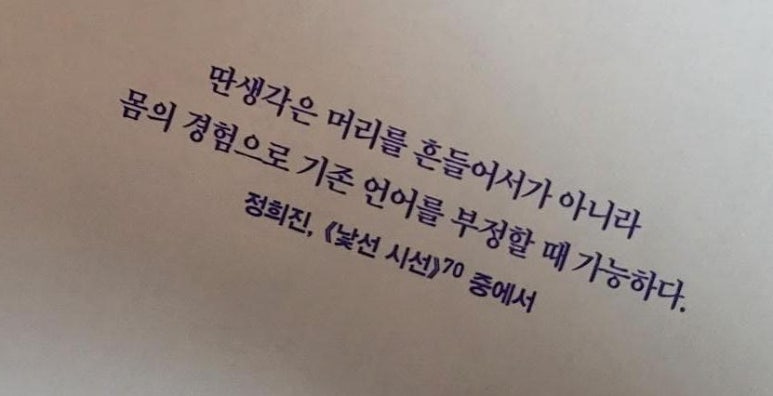 딴생각은 머리를 흔들어서가 아니라
몸의 경험으로 기존 언어를 부정할 때 가능하다.
정희진, 《낯선 시선》70 중에서